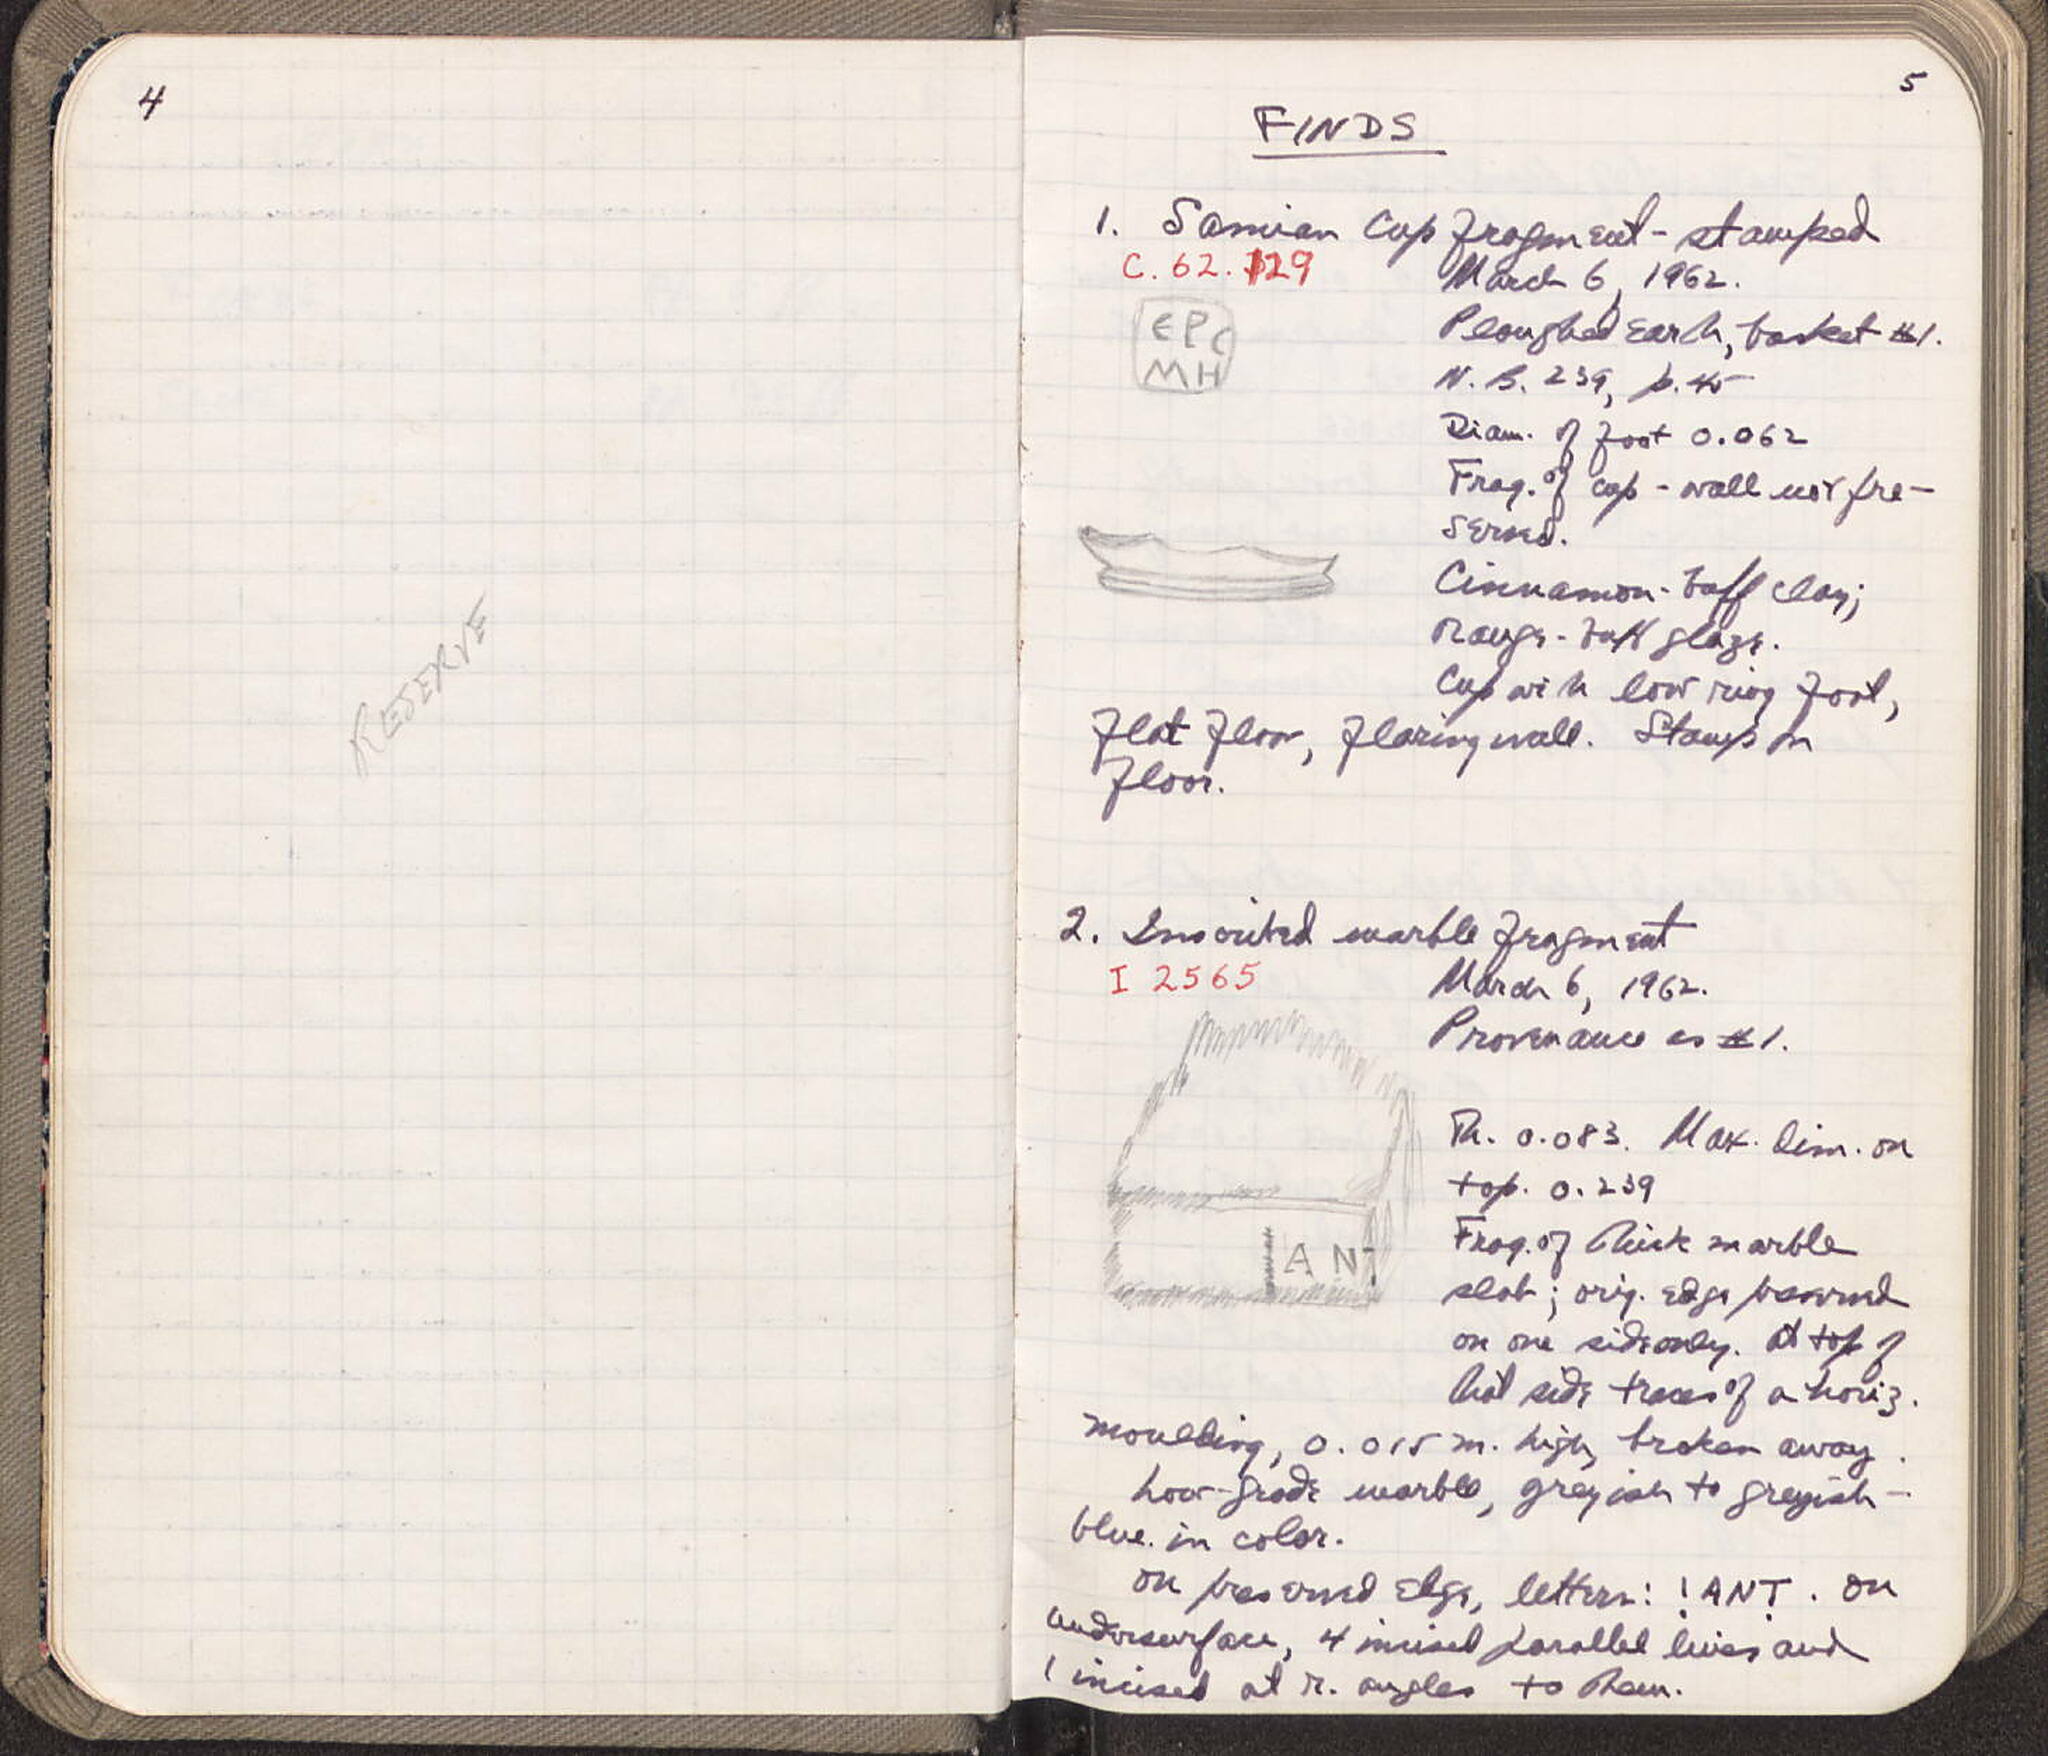 4
RESERVE
5
FINDS
1. Samian Cup fragment - stamped
C. 62. 129
March 6, 1962.
EPC
MH
Ploughed earth, basket #1.
N. B. 239, p. 45
Diam. of foot 0.062
Frag. of cup - wall not pre-
served.
Cinnamon-buff clay;
orange-buff glaze.
Cup with low ring foot,
flat floor, flaring wall. Stamp on
floor.
2. Inscribed marble fragment
I 2565
March 6, 1962.
Provenance as #1.
Th. 0.083. Max. dim. on
top. 0.239
IANT
Frag. of thick marble
slab; orig. edge preserved
on one side only. At top of
that side traces of a horiz.
moulding, 0.015 m. high, broken away.
Low-grade marble, greyish to greyish-
blue in color.
On preserved edge, letters: ỊANṬ. On
undersurface, 4 incised parallel lines and
1 incised at r. angles to them.